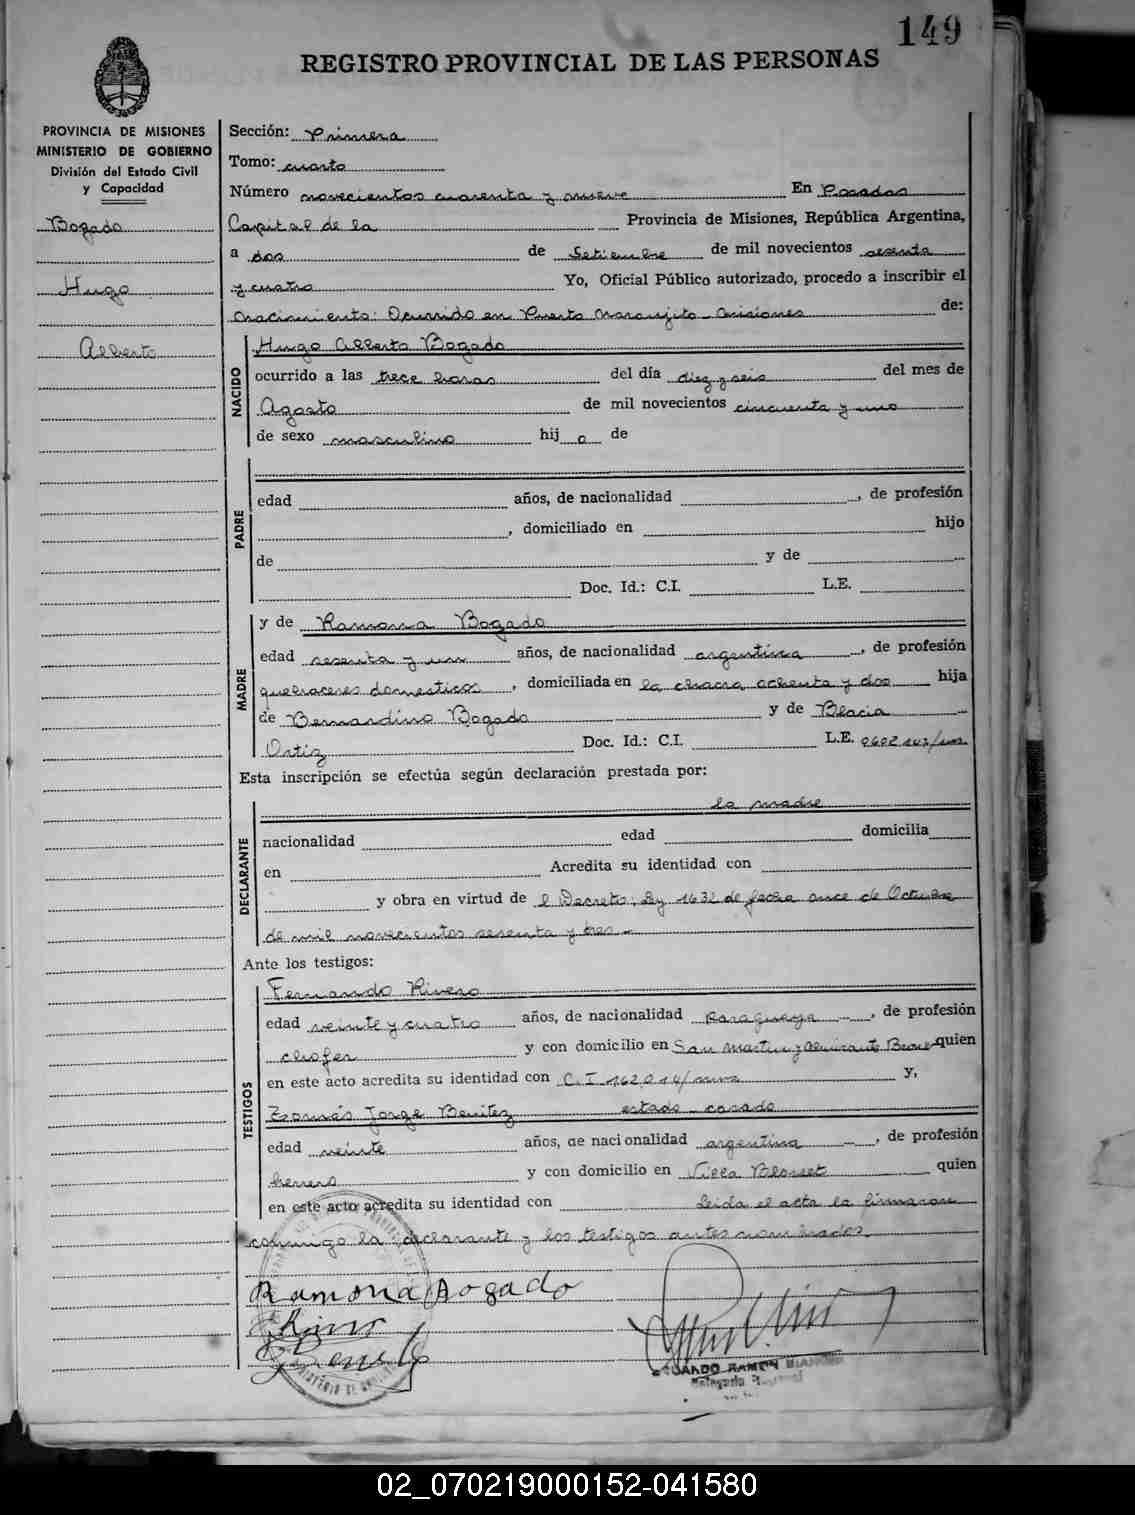 149
REGISTRO PROVINCIAL DE LAS PERSONAS
PROVINCIA DE MISIONES
MINISTERIO DE GOBIERNO
División del Estado Civil
y Capacidad
Bogado
Hugo
Alberto
Sección: Primera
Tomo: cuarto
Número novecientos cuarenta y nueve En Posadas
Capital de la Provincia de Misiones, República Argentina,
a dos de Setiembre de mil novecientos sesenta
y cuatro Yo, Oficial Público autorizado, procedo a inscribir el
nacimiento: Ocurrido en Puerto Naranjito - Misiones de:
NACIDO
Hugo Alberto Bogado
ocurrido a las trece horas del día diez y seis del mes de
Agosto de mil novecientos cincuenta y uno
de sexo masculino hij o de
PADRE
edad años, de nacionalidad , de profesión
, domiciliado en hijo
de y de
Doc. Id.: C.I. L.E.
MADRE
y de Ramona Bogado
edad sesenta y un años, de nacionalidad argentina , de profesión
quehaceres domesticos , domiciliada en la chacra ochenta y dos hija
de Bernardino Bogado y de Blacia
Ortiz Doc. Id.: C.I. L.E.
Esta inscripción se efectúa según declaración prestada por:
la madre
DECLARANTE
nacionalidad edad domicilia
en Acredita su identidad con
y obra en virtud de l Decreto; Ley 1632 de fecha once de Octubre
de mil novecientos sesenta y tres -
Ante los testigos:
TESTIGOS
Fernando Rivero
edad veinte y cuatro años, de nacionalidad Paraguaya , de profesión
chofer y con domicilio en San Martin y Almirante Brown quien
en este acto acredita su identidad con C.I 162.014/ y,
Tomás Jorge Benitez estado - casado
edad veinte años, de nacionalidad argentina , de profesión
herrero y con domicilio en Villa Blosset quien
en este acto acredita su identidad con Leida el acta la firmaron
conmigo la declarante y los testigos antes nombrados.
Ramona Bogado
EDUARDO RAMON
02_070219000152-041580